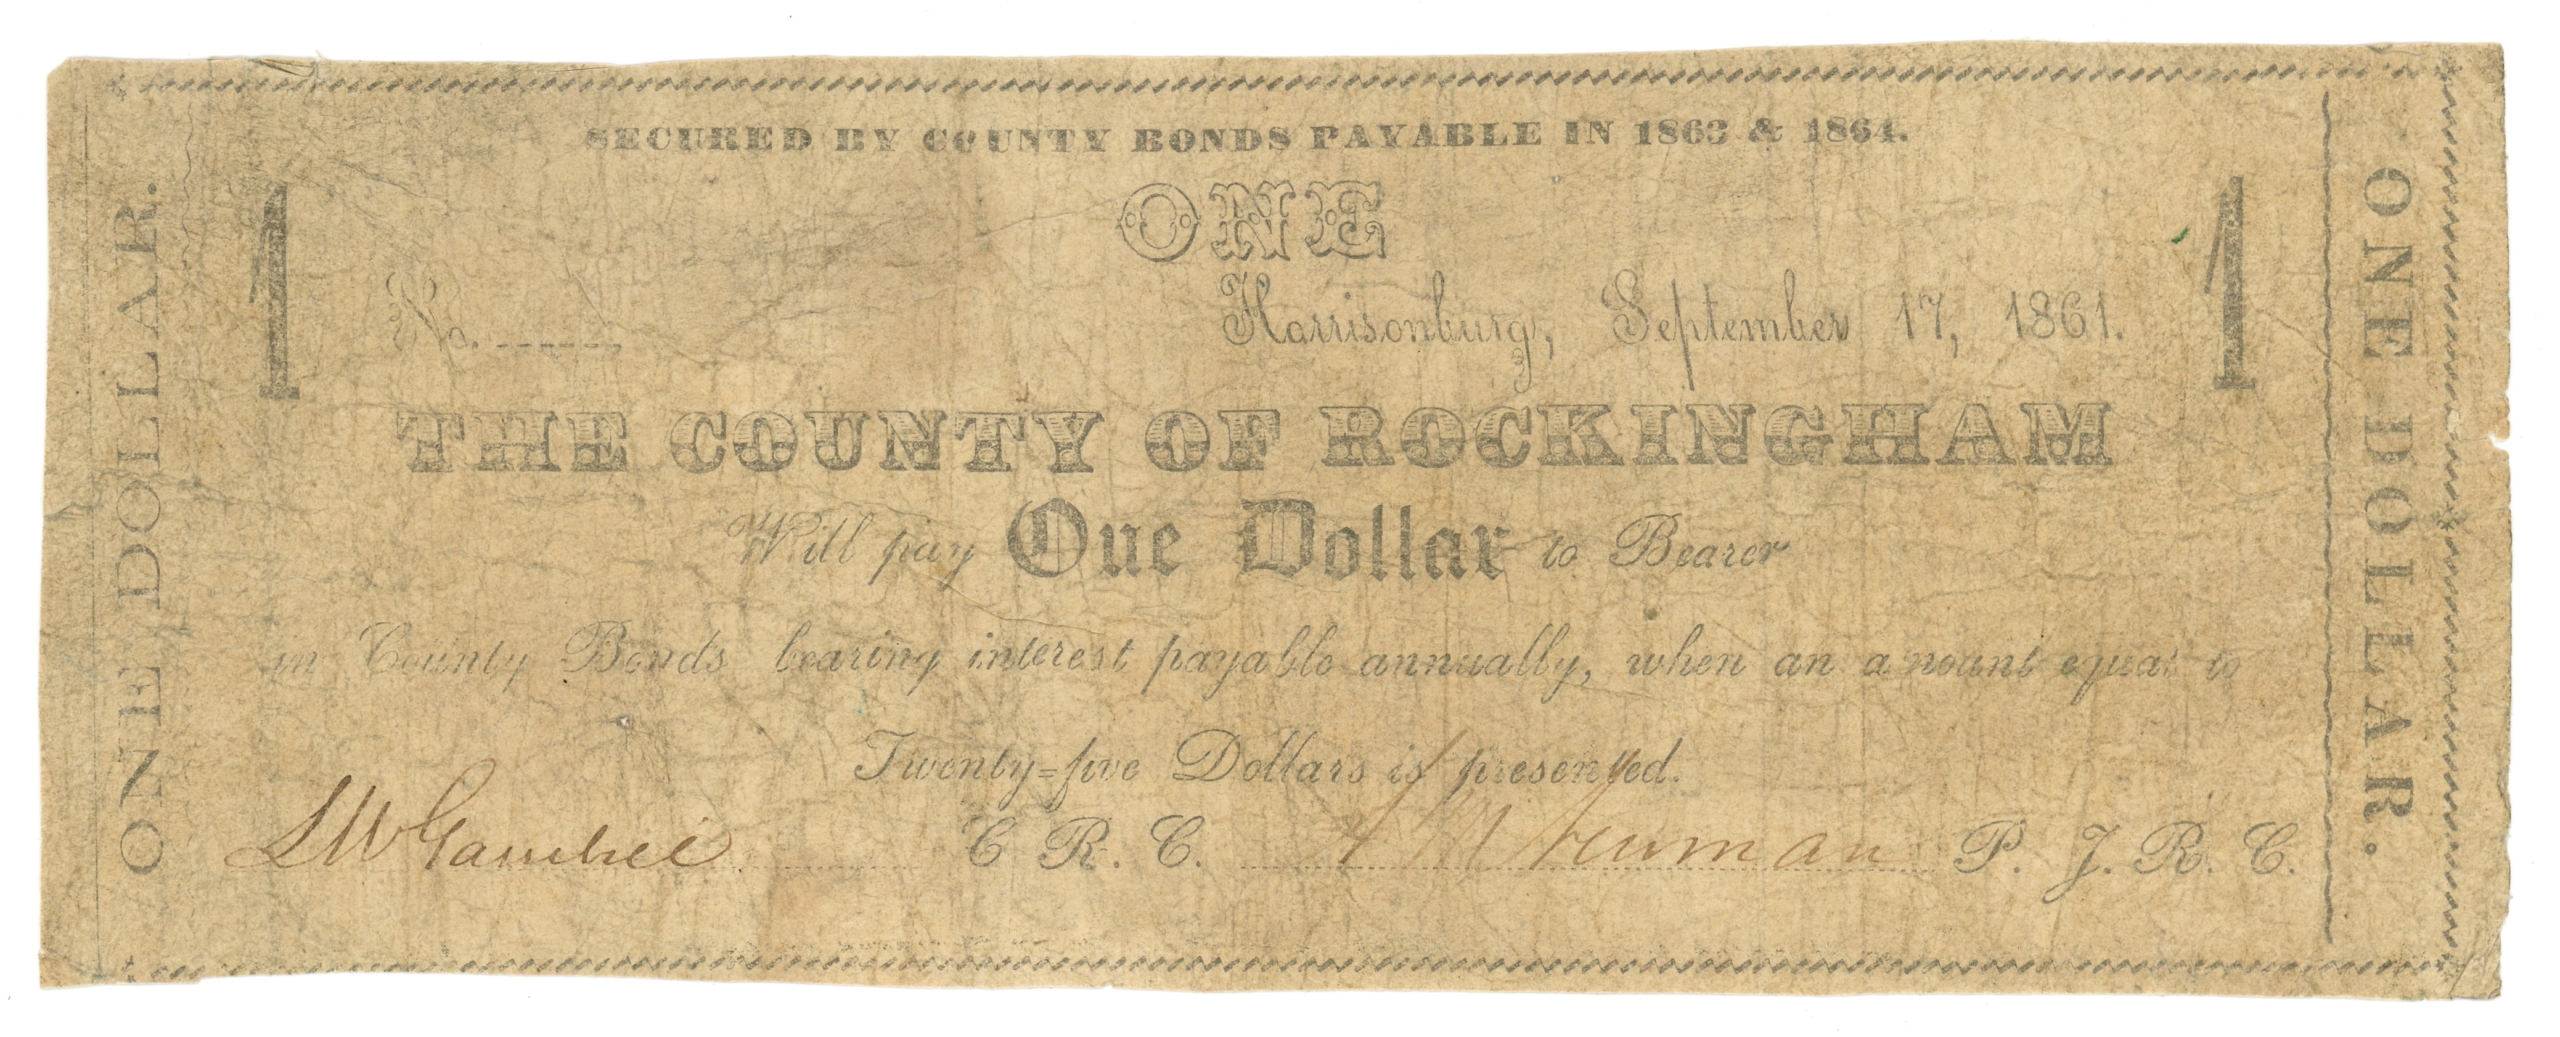 SECURED BY COUNTY BONDS PAYABLE IN 1863 & 1864.
ONE
1
1
No.
Harrisonburg, September 17, 1861.
THE COUNTY OF ROCKINGHAM
Will pay One Dollar to Bearer
in County Bonds bearing interest payable annually, when an amount equal to
Twenty=five Dollars is presented.
C. R. C. A M Newman P. J. R. C.
ONE DOLLAR.
ONE DOLLAR.